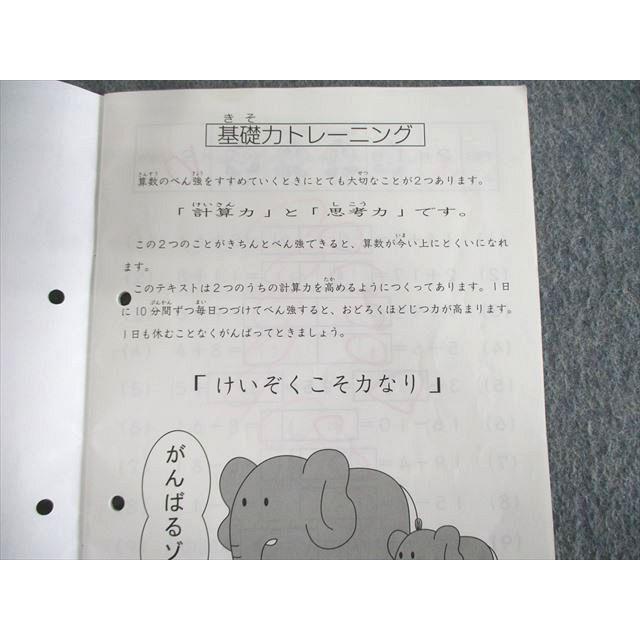 基礎力トレーニング
算数のべん強をすすめていくときにとても大切なことが2つあります。
「計算力」と「思考力」です。
この2つのことがきちんとべん強できると、算数が今い上にとくいになれ
ます。
このテキストは2つのうちの計算力を高めるようにつくってあります。1日
に10分間ずつ毎日つづけてべん強すると、おどろくほどじつ力が高まります。
1日も休むことなくがんばってときましょう。
「けいぞくこそ力なり」
がんばるゾ